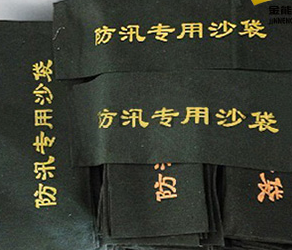 金能
JINNENG
防汛专用沙袋
防汛专用沙袋
防汛专用沙袋
防汛
袋